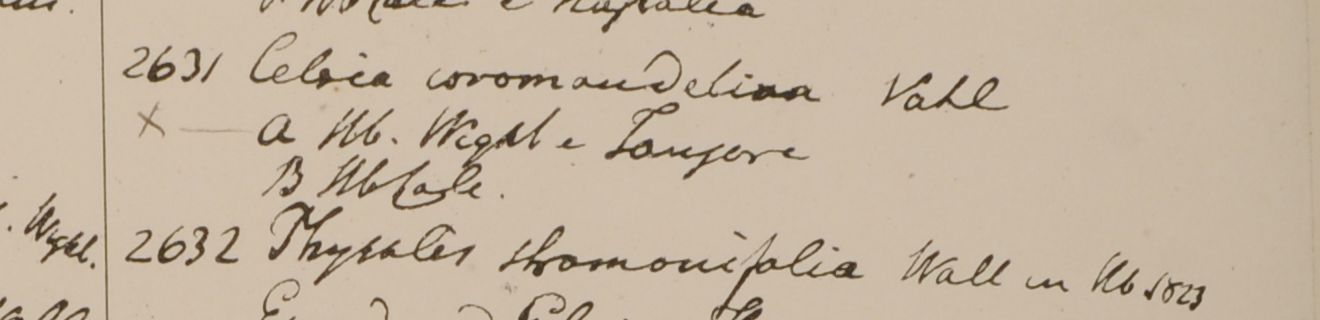 e Napalia
2631 Celsia coromandelina Vahl
X — A Hb. Wight e Tanjore
B Hb Calc.
Wight.
2632 Physalis stramonifolia Wall in Hb 1823